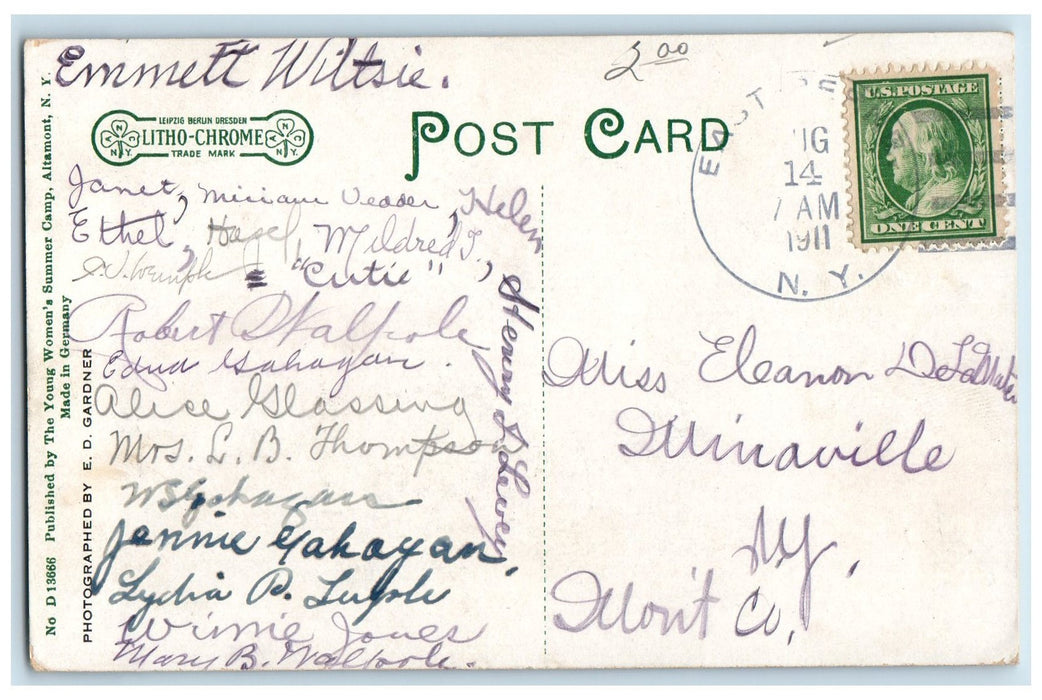 Emmett Wiltsie.
2.00
LEIPZIG BERLIN DRESDEN
LITHO-CHROME
TRADE MARK
A N C N.Y.
A N C N.Y.
POST CARD
EAST
14
7 AM
1911
N.Y.
U.S. POSTAGE
ONE CENT
No D 13666 Published by The Young Women's Summer Camp, Altamont, N. Y.
Made in Germany
PHOTOGRAPHED BY E. D. GARDNER
Janet, Miriam Vedder, Helen
Ethel, Hazel, Mildred
"Cutie"
Robert Walpole
Edna Gahagan.
Alice Glassing
Mrs. L. B. Thompson
Gahagan
Jennie Gahagan.
Lydia P.
Winnie Jones
Mary B. Walpole.
Henry
Miss Eleanor DeLaMater
Minaville
NY.
Mont Co.